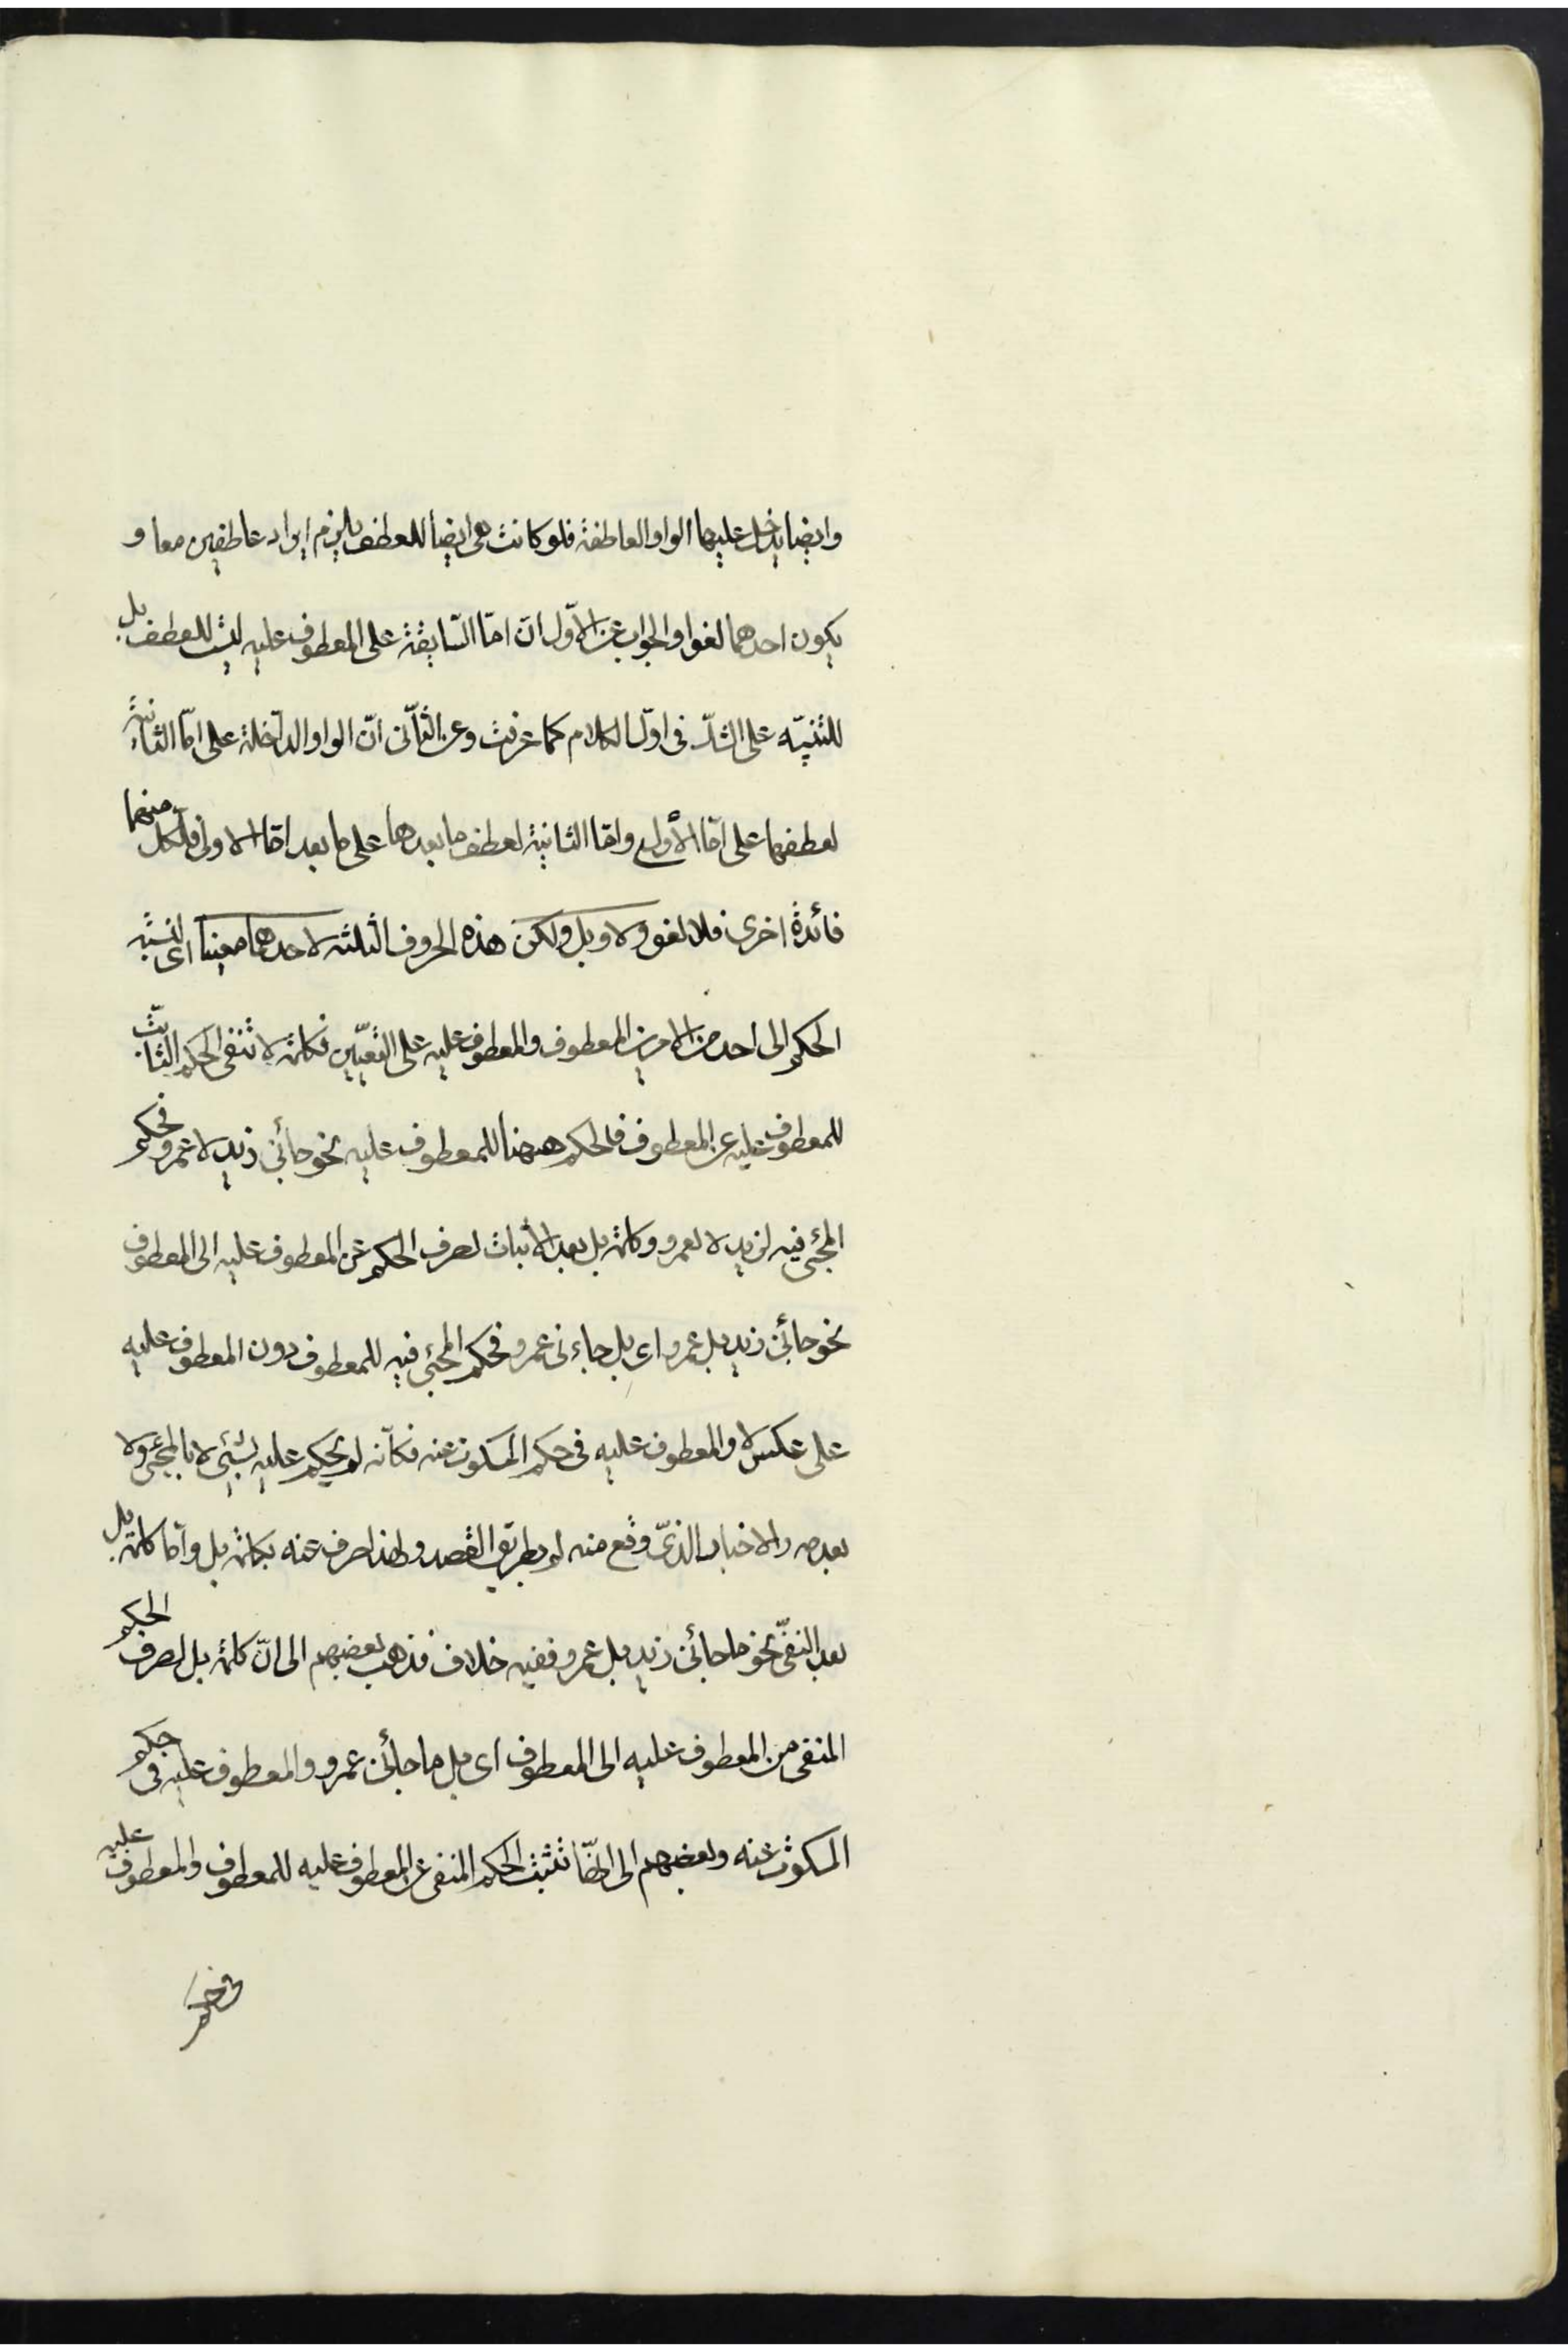 وايضا يدخل عليها الواو العاطفة فلو كانت هى ايضا للعطف يلزم ايراد عاطفين معا و
يكون احدهما لغوا والجواب عن الاوّل ان امّا السّابقة على المعطوف عليه ليست للعطف بل
للتنبيّه على الشكّ فى اوّل الكلام كما عرفت وعن الثّانى انّ الواو الداخلة على امّا الثانية
لعطفها على امّا الأولى وامّا الثانية لعطف ما بعدها على ما بعد امّا الاولى فلكل منهما
فائدة اخرى فلا لغو ولا وبل ولكن هذه الحروف الثلثة لاحدهما معينا اى لنسبة
الحكم الى احد من الامرين المعطوف والمعطوف عليه على التعيّين فكلمة لا تنفى الحكم الثابت
للمعطوف عليه عن المعطوف فالحكم ههنا للمعطوف عليه نحو جائنى زيد لا عمرو فحكم
المجئى فيه لزيد لا لعمرو وكلمة بل بعد الأثبات لصرف الحكم عن المعطوف عليه الى المعطوف
نحو جائنى زيد بل عمرو اى بل جاءنى عمرو فحكم المجئى فيه للمعطوف دون المعطوف عليه
على عكس لا والمعطوف عليه فى حكم المسكوت عنه فكأنه لم يحكم عليه بشيئى لا بالمجئى ولا
بعدمه والاخبار الذىّ وقع منه لم بطريق القصد ولهذا صرف عنه بكلمة بل وامّا كلمة بل
بعد النفىّ نحو ما جائنى زيد بل عمرو ففيه خلاف فذهب بعضهم الى انّ كلمة بل لصرف الحكم
المنفى من المعطوف عليه الى المعطوف اى بل ما جائنى عمرو والمعطوف عليه فى حكم
المسكوت عنه وبعضهم الى انّها تثبت الحكم المنفى عن المعطوف عليه للمعطوف والمعطوف عليه
فى حكم